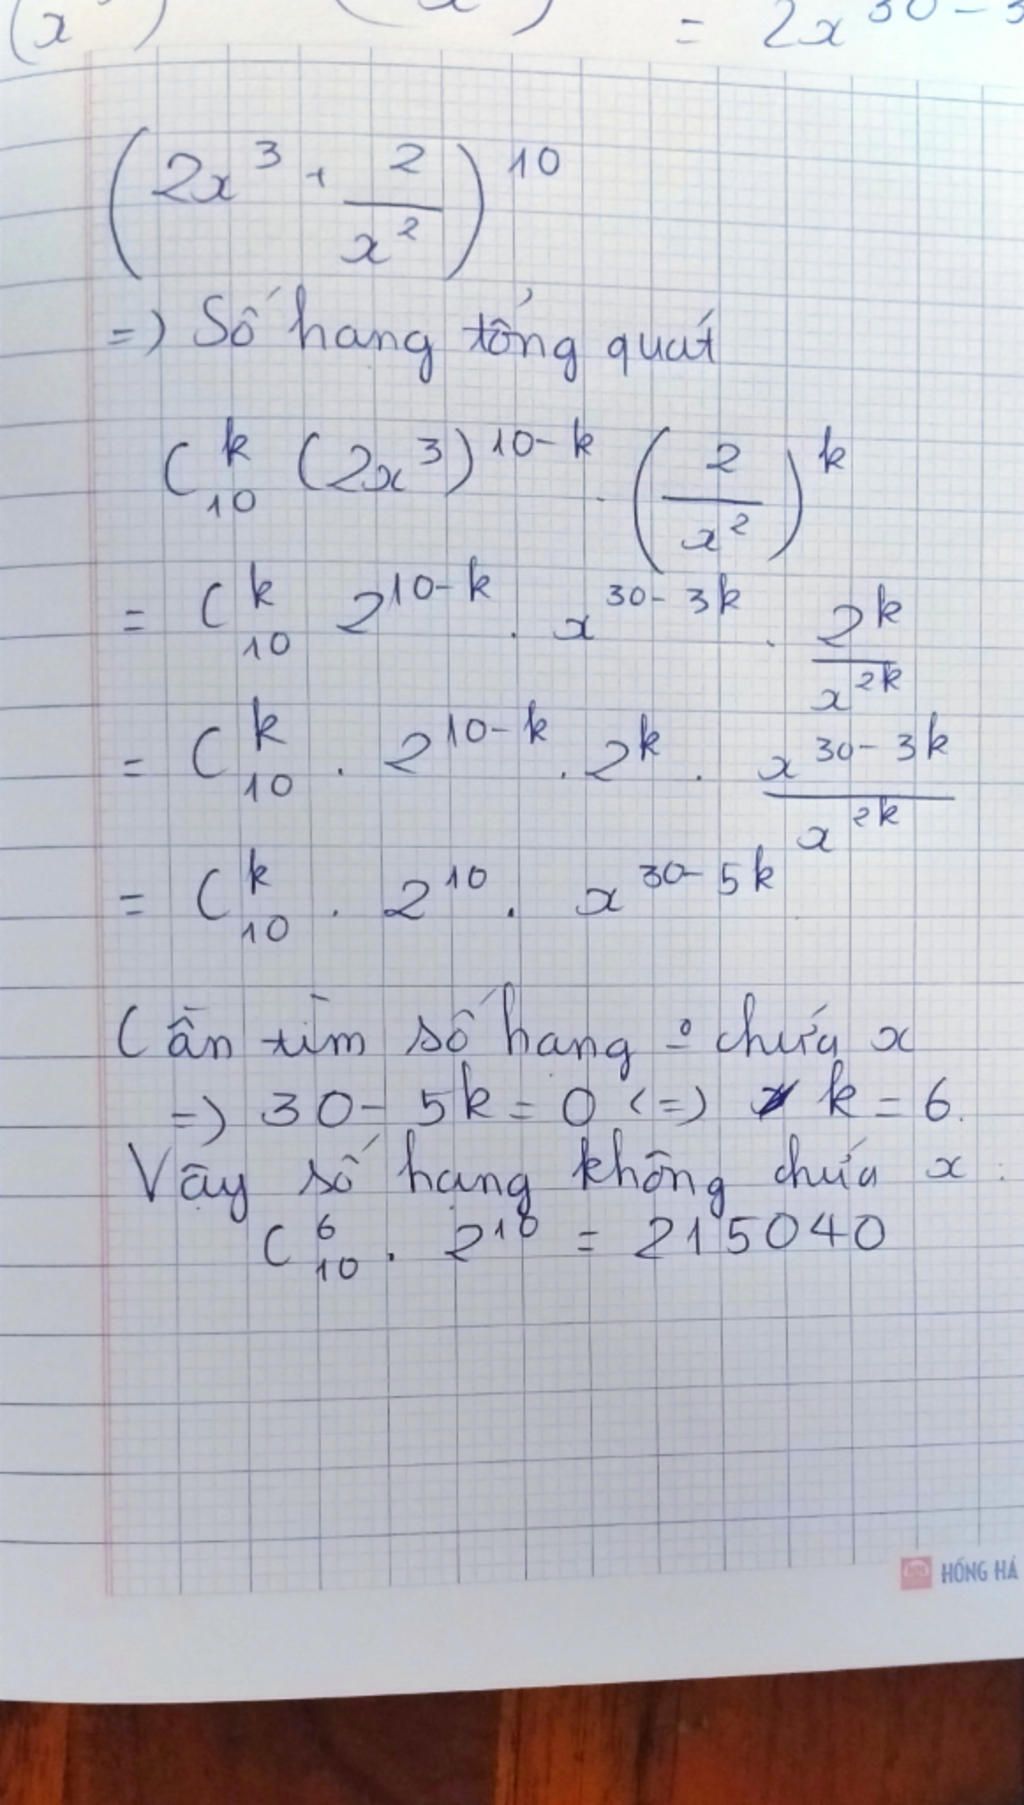 = 2x^{30-3
(2x^3 + \frac{2}{x^2})^{10}
=) Số hang tổng quát
C_{10}^k (2x^3)^{10-k} . (\frac{2}{x^2})^k
= C_{10}^k 2^{10-k} . x^{30-3k} . \frac{2^k}{x^{2k}}
= C_{10}^k . 2^{10-k} . 2^k . \frac{x^{30-3k}}{x^{2k}}
= C_{10}^k . 2^{10} . x^{30-5k}
Cần tìm số hang : chứa x
=) 30 - 5k = 0 (=) k = 6.
Vậy số hạng không chứa x :
C_{10}^6 . 2^{10} = 215040
HỒNG HÀ